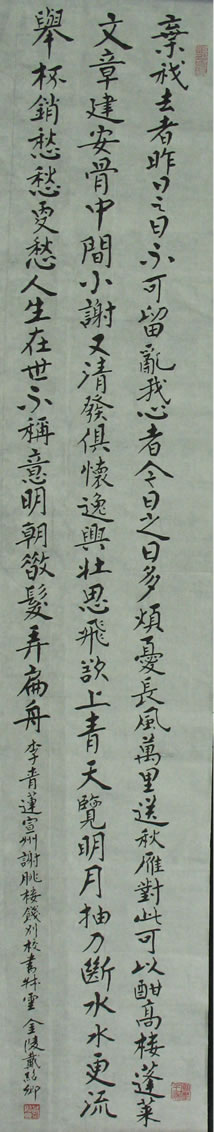 棄我去者昨日之日不可留亂我心者今日之日多煩憂長風萬里送秋雁對此可以酣高樓蓬萊
文章建安骨中間小謝又清發俱懷逸興壯思飛欲上青天覽明月抽刀斷水水更流
舉杯銷愁愁更愁人生在世不稱意明朝散髮弄扁舟 李青蓮宣州謝朓樓餞別校書叔雲 金陵戴